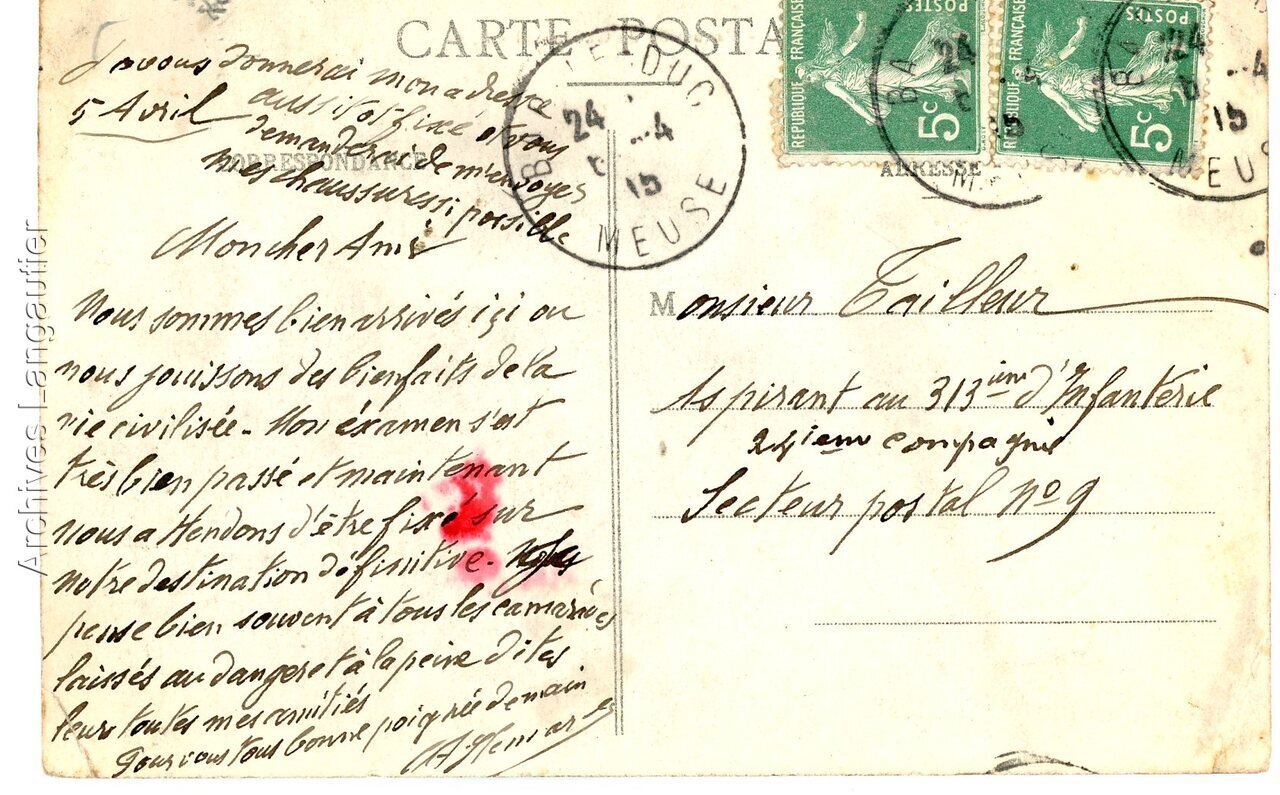 CARTE POSTA
Je vous donnerai mon adresse
aussitôt fixé et vous
demanderai de m'envoyer
mes chaussures si possible
5 Avril
CORRESPONDANCE
Mon cher Ami
Nous sommes bien arrivés ici ou
nous jouissons des bienfaits de la
vie civilisée - Mon éxamen s'est
très bien passé et maintenant
nous attendons d'être fixé sur
notre destination définitive.
pense bien souvent à tous les camarades
laissés au danger et à la peine dites
leur toutes mes amitiés
Pour vous tous bonne poignée de main
BAR-LE-DUC
24
4
15
MEUSE
REPUBLIQUE FRANÇAISE
POSTES
5c
REPUBLIQUE FRANÇAISE
POSTES
5c
BA
24
BA
4
15
MEUS
ADRESSE
Monsieur Tailleur
Aspirant au 313ième d'Infanterie
24ieme compagnie
Secteur postal No 9
Archives Langautier